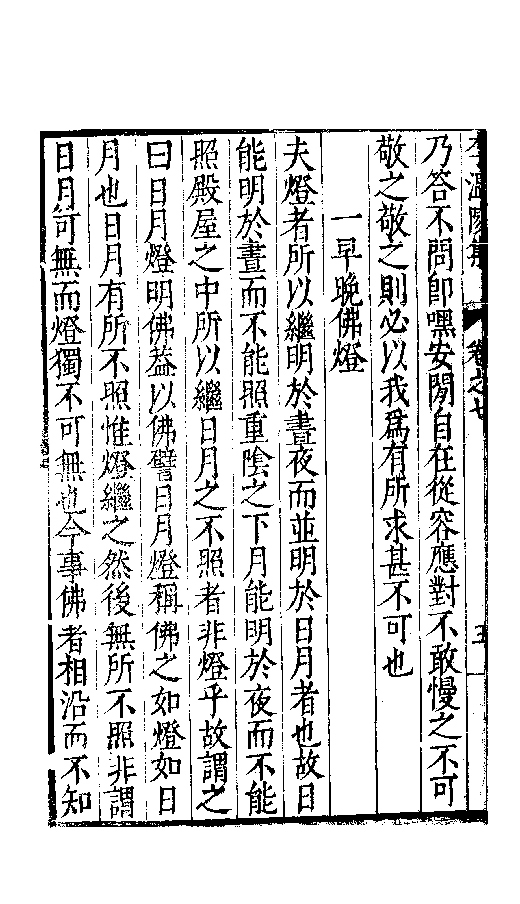 李溫陵集 卷之七 五
乃答不問即嘿安閒自在從容應對不敢慢之不可
敬之敬之則必以我為有所求甚不可也
一早晚佛燈
夫燈者所以繼明於晝夜而並明於日月者也故日
能明於晝而不能照重陰之下月能明於夜而不能
照殿屋之中所以繼日月之不照者非燈乎故謂之
曰日月燈明佛葢以佛譬日月燈稱佛之如燈如日
月也日月有所不照惟燈繼之然後無所不照非謂
日月可無而燈獨不可無也今事佛者相沿而不知